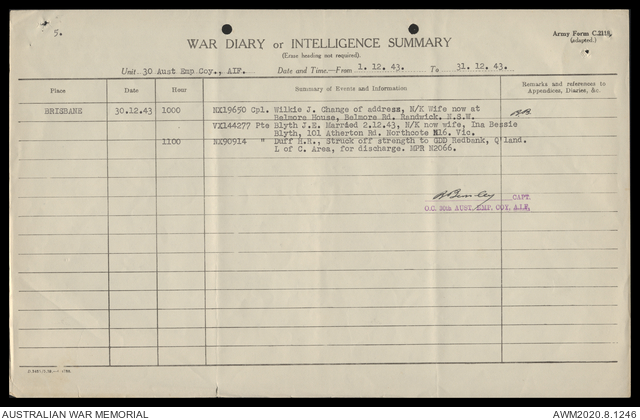 5.
Army Form C.2118.
(adapted.)
WAR DIARY or INTELLIGENCE SUMMARY
(Erase heading not required).
Unit 30 Aust Emp Coy., AIF. Date and Time.—From 1. 12. 43. To 31. 12. 43.
Place Date Hour Summary of Events and Information Remarks and references to Appendices, Diaries, &c.
BRISBANE 30.12.43 1000 NX19650 Cpl. Wilkie J. Change of address, N/K Wife now at
Belmore House, Belmore Rd. Randwick. N.S.W.
VX144277 Pte Blyth J.E. Married 2.12.43, N/K now wife, Ina Bessie
Blyth, 101 Atherton Rd. Northcote N16. Vic.
1100 NX90914 " Duff H.R., Struck off strength to GDD Redbank, Q'land.
L of C. Area, for discharge. MPR H2066.
CAPT.
O.C. 30th AUST. EMP. COY. A.I.F.
AUSTRALIAN WAR MEMORIAL
AWM2020.8.1246